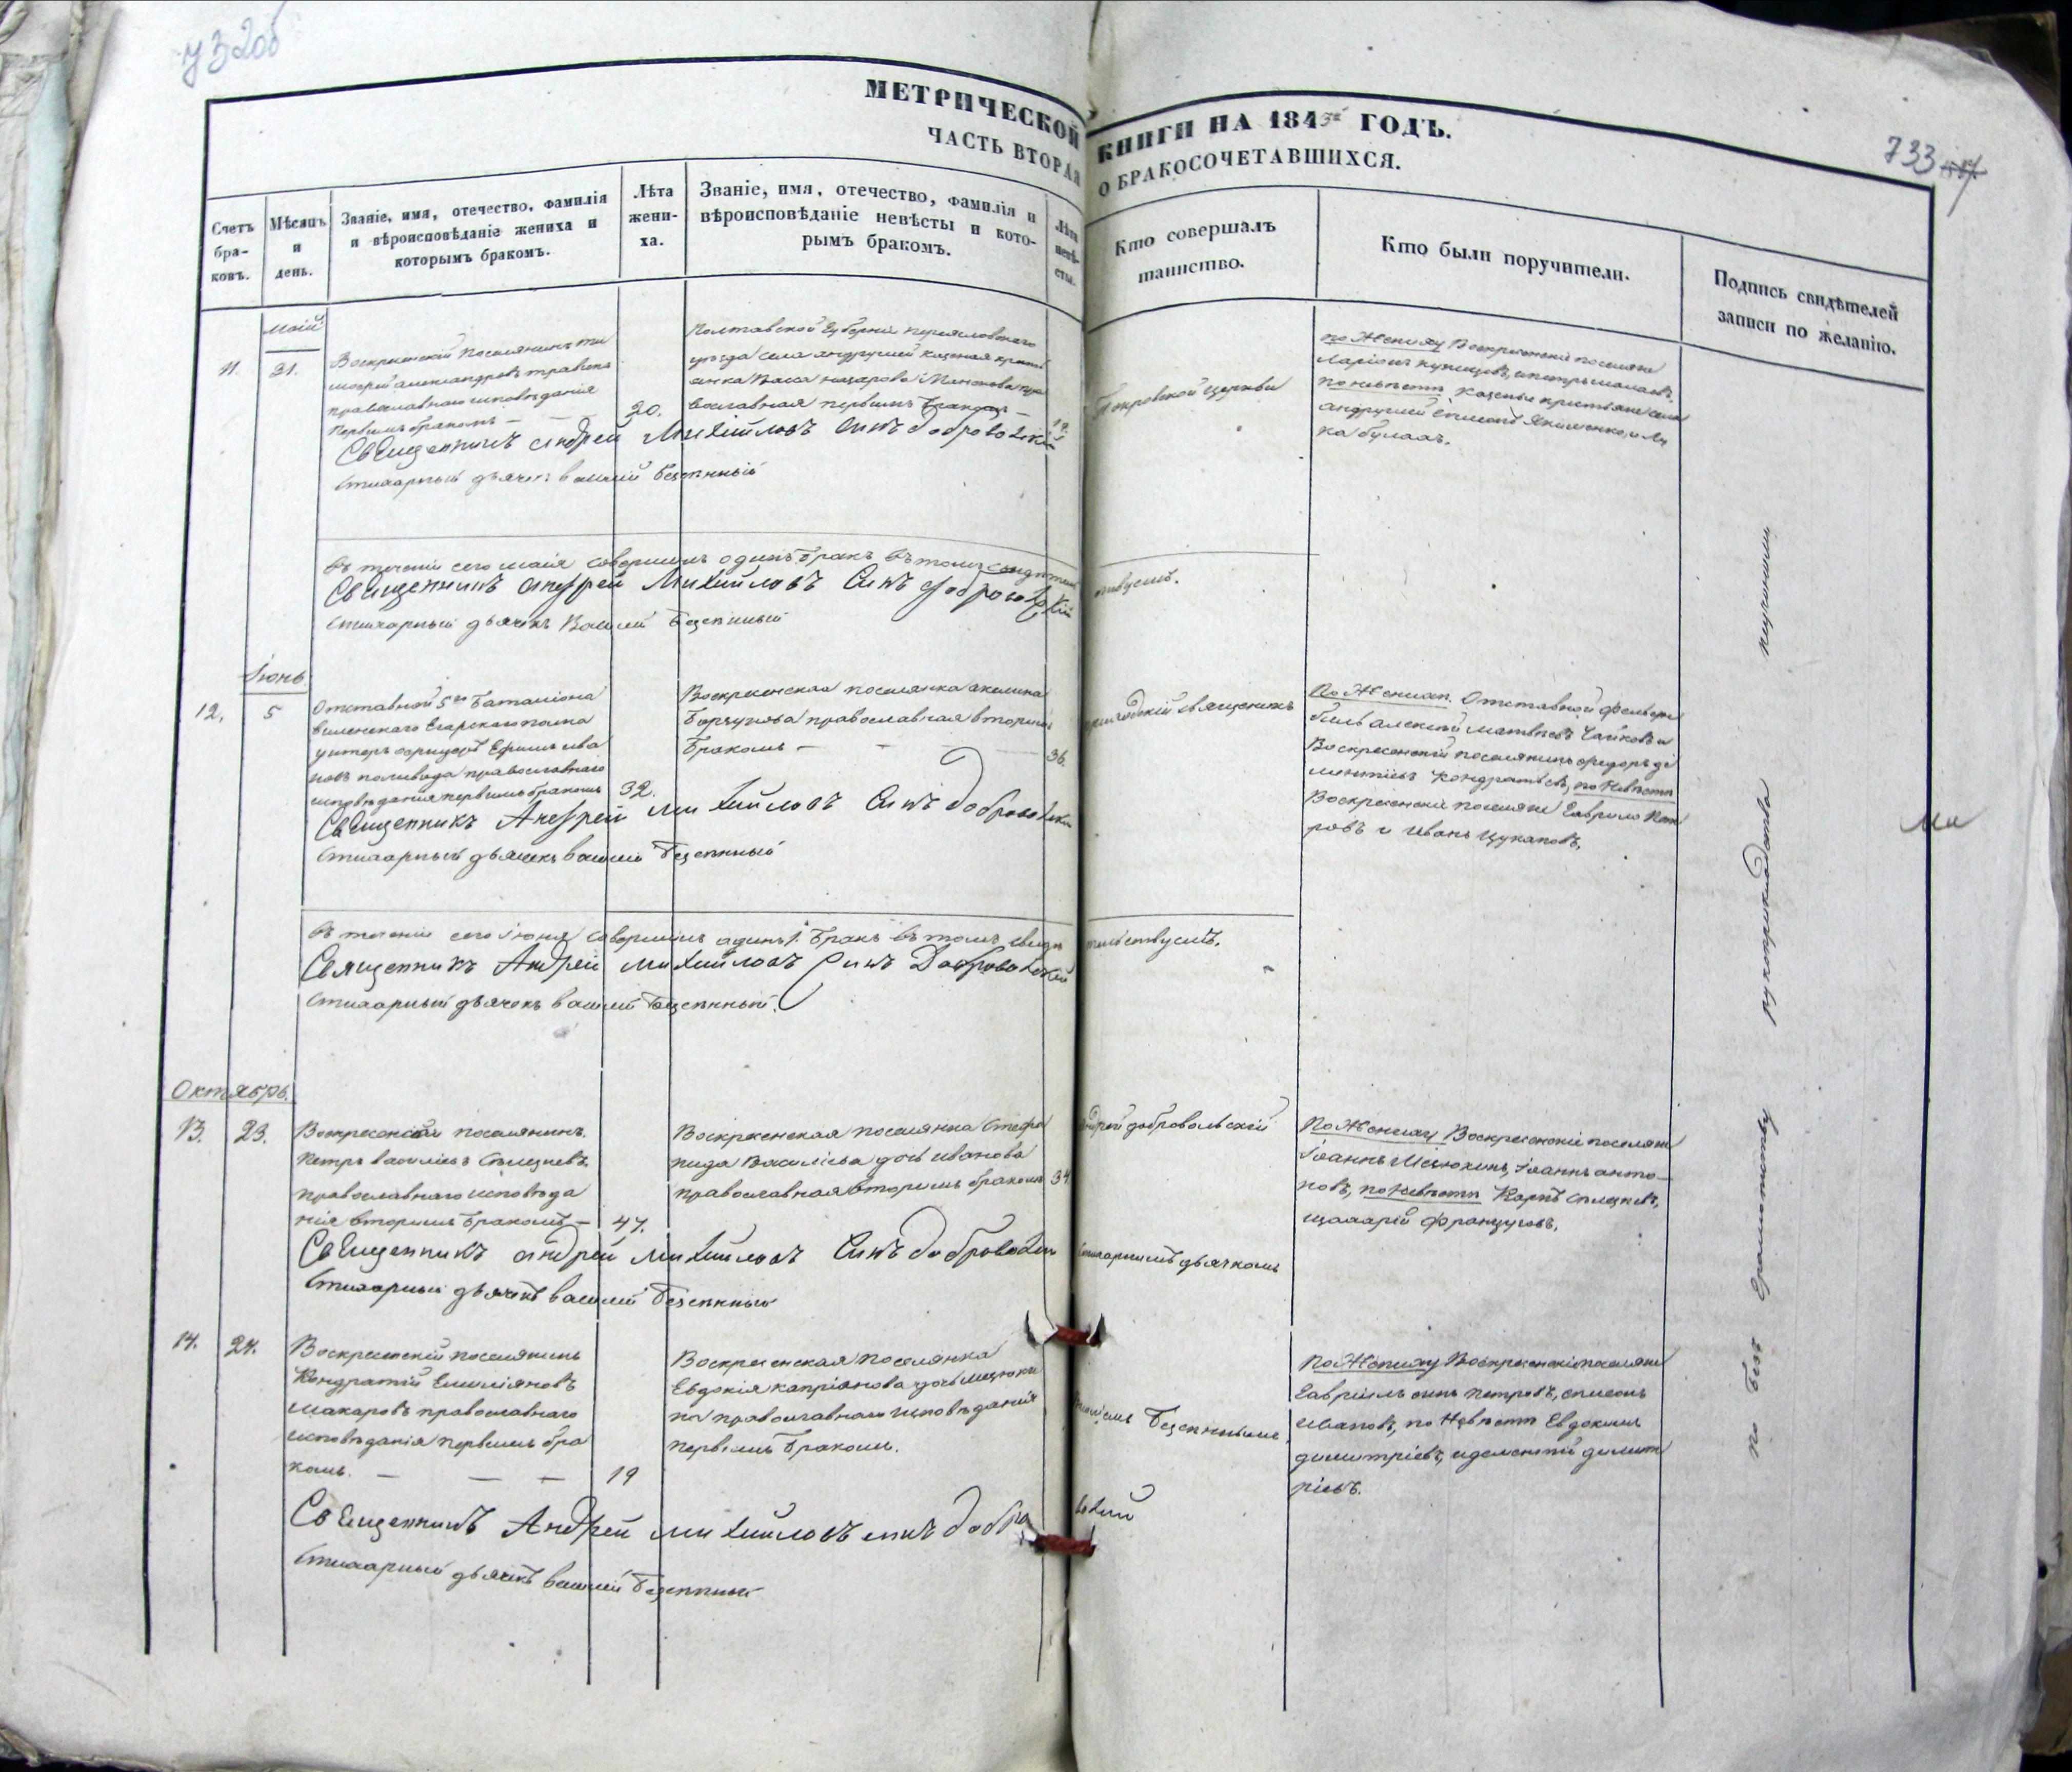 733
МЕТРИЧЕСКОЙ КНИГИ НА 1843й ГОДЪ.
ЧАСТЬ ВТОРАЯ О БРАКОСОЧЕТАВШИХСЯ.
Счетъ бра-ковъ.
Мѣсяцъ и день.
Званіе, имя, отечество, фамилія
и вѣроисповѣданіе жениха и
которымъ бракомъ.
Лѣта жени-ха.
Званіе, имя, отечество, фамилія и
вѣроисповѣданіе невѣсты и кото-
рымъ бракомъ.
Лѣта невѣ-сты.
Кто совершалъ
таинство.
Кто были поручители.
Подпись свидѣтелей
записи по желанію.
Маій
11.
21.
Воскресенскій поселянинъ Ти
мофей Александровъ
православнаго исповѣданія
первымъ бракомъ —
20.
Полтавской Губерніи Переясловскаго
уѣзда села Андрушей казеная крестьі
анка Васса Назарова пра
вославная первымъ бракомъ —
19.
Покровской церкви
по Жениху Воскресенскіе поселяне
Ларіонъ Кузнецовъ, и Петръ
по невѣстѣ казеные крестьяне села
Андрушей Якименко, и Лу
ка Булахъ.
Священникъ Андрей Михайловъ Синъ Добровольскій
Стихарный дьячекъ Василій Безпенный
въ теченіи сего маія совершенъ одинъ бракъ въ томъ свидѣтель
ствуемъ.
Священникъ Андрей Михайловъ Синъ Добровольскій
Стихарный дьячекъ Василій Безпенный
Іюнь
12.
5
Отставной 5го Баталіона
Виленскаго Егарскаго полка
унтеръ офицеръ Ефимъ Ива
новъ Поливода православнаго
исповѣданія первымъ бракомъ
32.
Воскресенская поселянка Акилина
православная вторымъ
бракомъ —
36.
приходскій священникъ
По Жениху. Отставной фельдфе
бель Алексѣй Матвѣевъ Чайковъ и
Воскресенскій поселянинъ Федоръ Де
ментіевъ Кондратьевъ, по Невѣстѣ
Воскресенскіе поселяне Гаврило Пет
ровъ и Иванъ Цукановъ.
Священникъ Андрей Михайловъ Синъ Добровольскій
Стихарный дьячекъ Василій Безпенный
въ теченіи сего Іюня совершенъ одинъ 1. бракъ въ томъ свидѣ
тельствуемъ.
Священникъ Андрей Михайловъ Синъ Добровольскій
Стихарный дьячекъ Василій Безпенный.
Октябрь.
13.
23.
Воскресенскій поселянинъ
Петръ Василіевъ
православнаго исповѣда
нія вторымъ бракомъ —
47.
Воскресенская поселянка Стефа
нида Василіева дочь Иванова
православная вторымъ бракомъ
34
Андрей Добровольскій
По Жениху Воскресенскіе поселяне
Іоаннъ Месюхинъ, Іоаннъ Анто-
новъ, по Невѣстѣ Карпъ
Захарій Французовъ.
Священникъ Андрей Михайловъ Синъ Добровольскій
стихарнымъ дьячкомъ
Стихарный дьячекъ Василій Безпенный
14.
24.
Воскресенскій поселянинъ
Кондратій Емиліяновъ
Макаровъ православнаго
исповѣданія первымъ бра
комъ. — — —
19
Воскресенская поселянка
Евдокія Капріянова дочь Месюхи
на православнаго исповѣданія
первымъ бракомъ.
Василіемъ Безпеннымъ.
По Жениху Воскресенскіе поселяне
Гавріилъ синъ Петровъ,
Ивановъ, по Невѣстѣ Евдокимъ
Димитріевъ, и Дементій Димит
ріевъ.
Священникъ Андрей Михайловъ синъ Добровольскій
Стихарный дьячекъ Василій Безпенный
по безъ Грамотству рукоприкладства неучинили